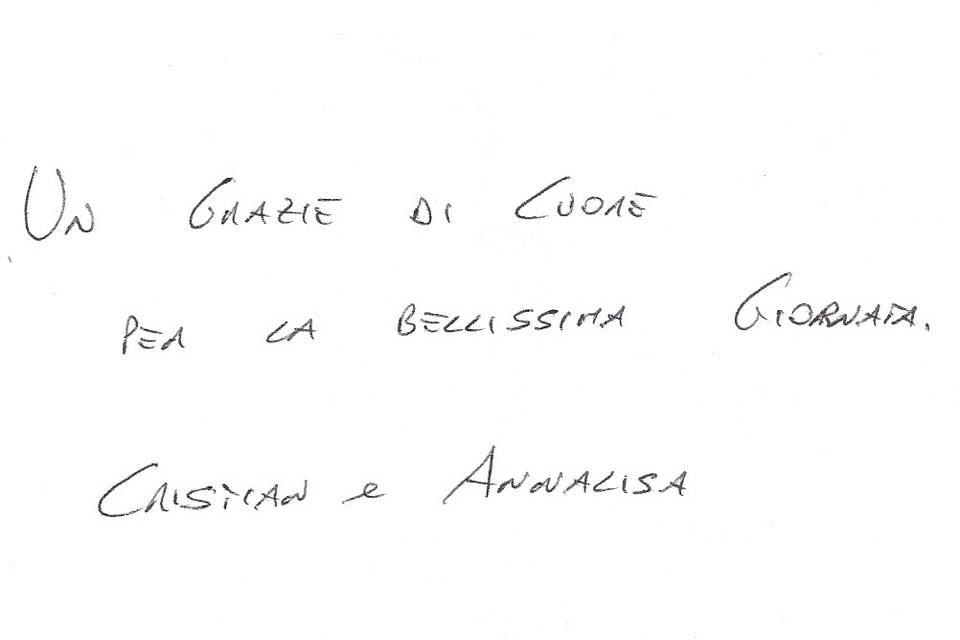 Un Grazie di Cuore
per la bellissima Giornata.
Cristian e Annalisa